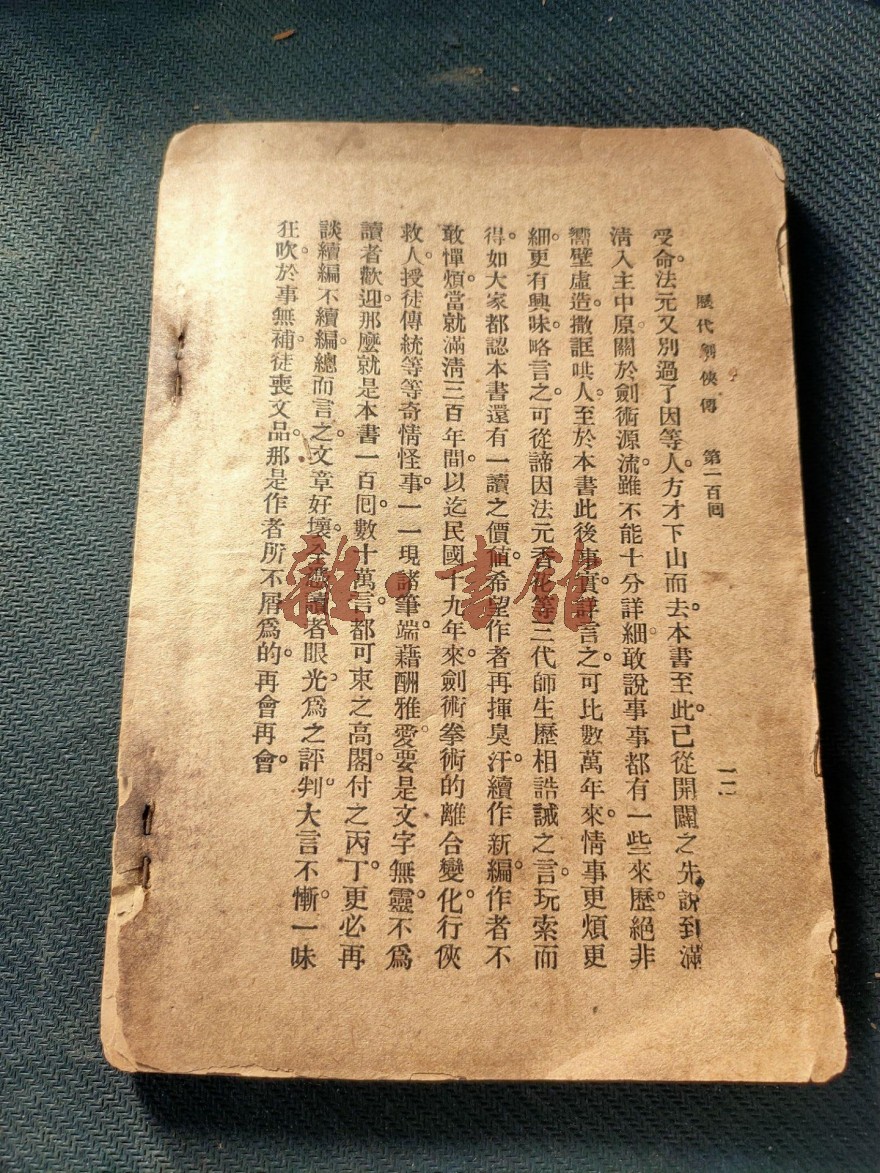 歷代劍俠傳　第一百回　一二
受命。法元又別過了因等人。方才下山而去。本書至此。已從開闢之先。說到滿
清入主中原。關於劍術源流。雖不能十分詳細。敢說事事都有一些來歷。絕非
嚮壁虛造。撒誑哄人。至於本書此後事實。詳言之。可比數萬年來。情事更煩更
細。更有興味。略言之。可從諦因法元香花等三代師生歷相誥誡之言。玩索而
得。如大家都認本書還有一讀之價值。希望作者再揮臭汗。續作新編。作者不
敢憚煩。當就滿清三百年間。以迄民國十九年來。劍術拳術的離合變化。行俠
救人。授徒傳統等等奇情怪事。一一現諸筆端。藉酬雅愛。要是文字無靈。不爲
讀者歡迎。那麼就是本書一百囘。數十萬言。都可束之高閣。付之丙丁。更必再
談續編不續編。總而言之。文章好壞。全憑讀者眼光。爲之評判。大言不慚。一味
狂吹。於事無補。徒喪文品。那是作者所不屑爲的。再會再會。
雜·書館